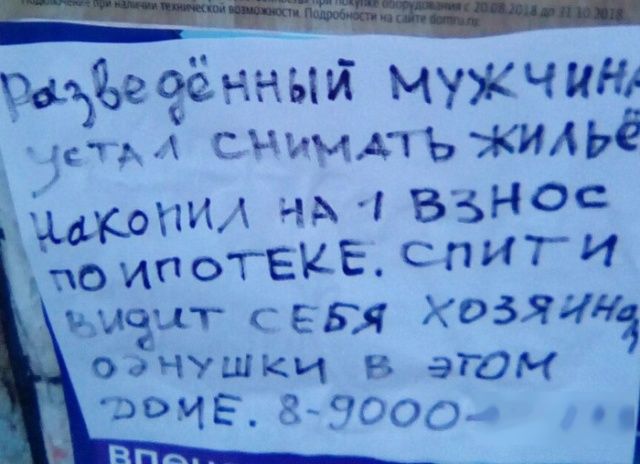 Подключение при наличии технической возможности. Подробности на сайте domru.ru
при покупке оборудования с 20.08.2018 до 31.10.2018.
Разведённый мужчина
устал снимать жильё
накопил на 1 взнос
по ипотеке. Спит и
видит себя хозяином
однушки в этом
доме. 8-9000-